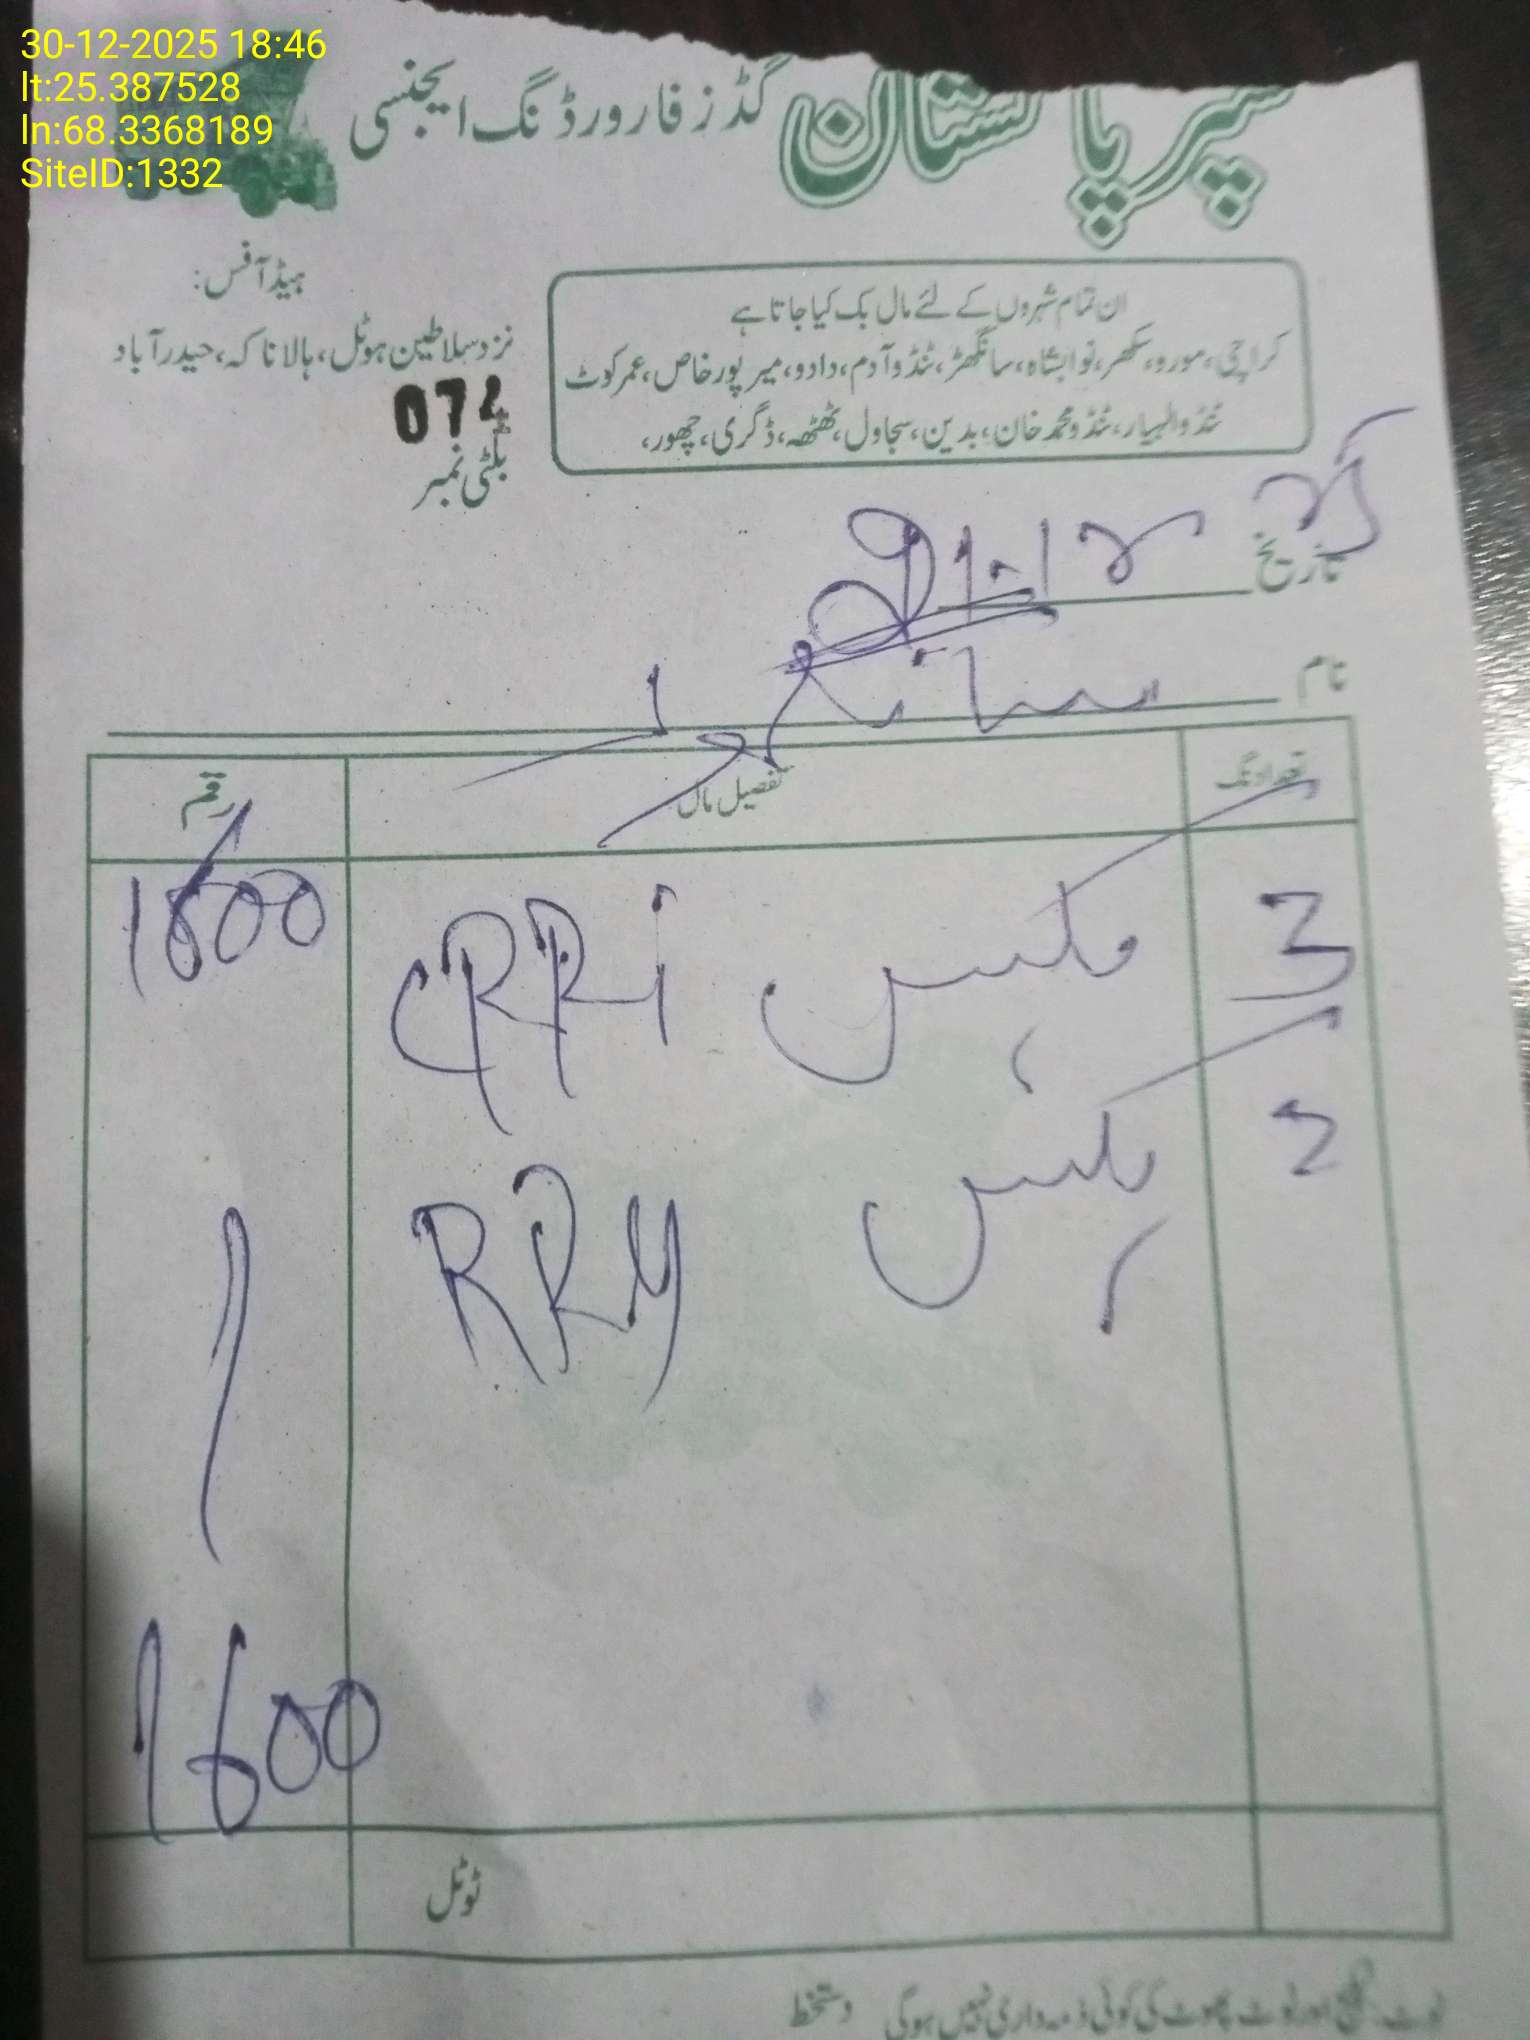 30-12-2025 18:46
lt:25.387528
ln:68.3368189
SiteID:1332
سپر پاکستان گڈز فارورڈنگ ایجنسی
ہیڈ آفس:
نزد سلاطین ہوٹل، ہالا ناکہ، حیدرآباد
ان تمام شہروں کے لئے مال بک کیا جاتا ہے
کراچی، مورو، سکھر، نوابشاہ، سانگھڑ، ٹنڈو آدم، دادو، میرپور خاص، عمرکوٹ
ٹنڈوالہیار، ٹنڈو محمد خان، بدین، سجاول، ٹھٹھہ، ڈگری، چھور،
074
بلٹی نمبر
تاریخ
نام
تعداد نگ تفصیل مال رقم
3 CRRi 1600
2 RRM
1600
ٹوٹل
نوٹ: لیکج اور ٹوٹ پھوٹ کی کوئی ذمہ داری نہیں ہوگی دستخط